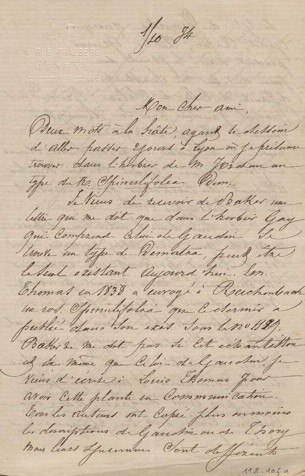 1/10 74
Mon cher ami,
Deux mots à la hâte, ayant le dessein
d'aller passer 2 jours à Lyon où je présume
trouver dans l'herbier de M. Jordan un
type du R. Spinulifolia Dem.
Je viens de recevoir de Baker une
lettre qui me dit que dans l'herbier Gay
qui comprend celui de Gaudin se
trouve un type de Dematra peut être
le seul existant aujourd'hui.
Thomas en 1838 a envoyé à Reichenbach
un ros. Spinulifolia que ce dernier a
publié dans son exs. sous le no
Baker ne me dit pas si cet échantillon
est le même que celui de Gaudin. Je
viens d'écrire à Louis Thomas pour
avoir cette plante en communication.
Tous les auteurs ont copié plus ou moins
les descriptions de Gaudin ou de Thory
mais leurs sont différents
118. 105a